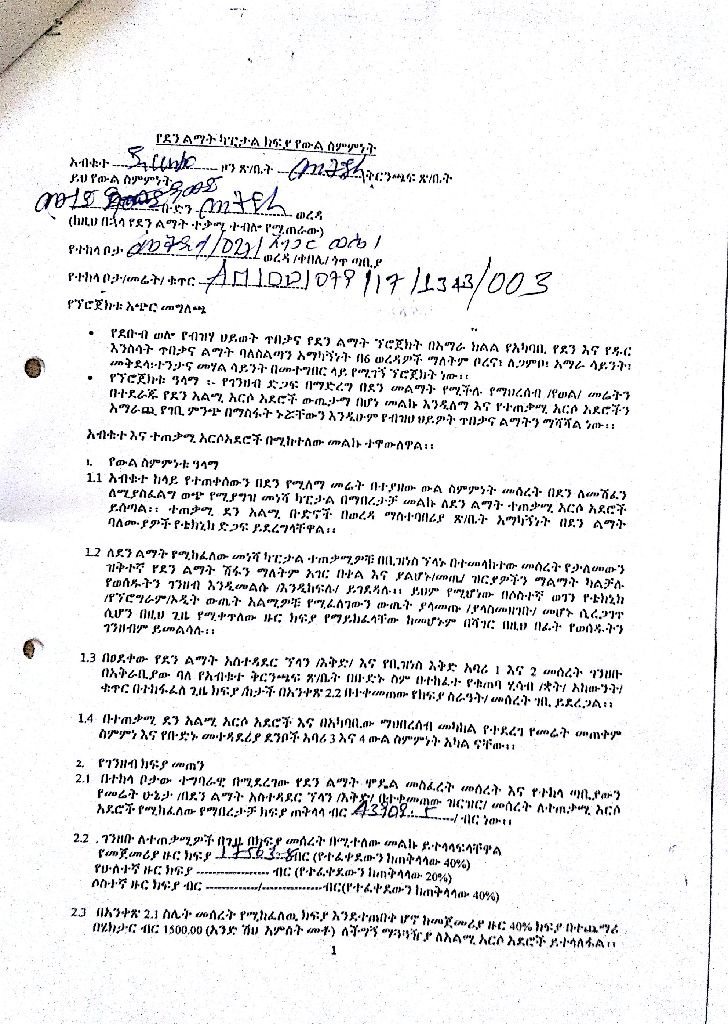 የደን ልማት ካፒታል ክፍያ የውል ስምምነት
አብቁተ ዞን ጽ/ቤት ቅርንጫፍ ጽ/ቤት
ይህ የውል ስምምነት
ቡድን ወረዳ
(ከዚህ በኋላ የደን ልማት ተቃሚ ተብሎ የሚጠራው)
የተከላ ቦታ ወረዳ /ቀበሌ/ ጎጥ ጣቢያ
የተከላ ቦታ/መሬት/ ቁጥር AM/DD/079/17/1343/003
የፕሮጀክቱ አጭር መግለጫ
• የደቡብ ወሎ የብዝሃ ህይወት ጥበቃና የደን ልማት ፕሮጀክት በአማራ ክልል የአካባቢ የደን እና የዱር
እንስሳት ጥበቃና ልማት ባለስልጣን አማካኝነት በ6 ወረዳዎች ማለትም ቦረና፣ ለጋምቦ፣ አማራ ሳይንት፣
መቅደላ፣ተንታና መሃል ሳይንት በመተግበር ላይ የሚገኝ ፕሮጀክት ነው፡፡
• የፕሮጀክቱ ዓላማ ፡- የገንዘብ ድጋፍ በማድረግ በደን መልማት የሚችሉ የማህረሰብ /የወል/ መሬትን
በተደራጁ የደን አልሚ አርሶ አደሮች ውጤታማ በሆነ መልኩ እንዲለማ እና የተጠቃሚ አርሶ አደሮችን
አማራጪ የገቢ ምንጭ በማስፋት ኑሯቸውን እንዲሁም የብዝሀ ህይዎት ጥበቃና ልማትን ማሻሻል ነው፡፡
አብቁተ እና ተጠቃሚ አርሶአደሮች በሚከተለው መልኩ ተዋውለዋል፡፡
1. የውል ስምምነቱ ዓላማ
1.1 አብቁተ ከላይ የተጠቀሰውን በደን የሚለማ መሬት በተያዘው ውል ስምምነት መሰረት በደን ለመሸፈን
ለሚያስፈልግ ወጭ የሚያግዝ መነሻ ካፒታል በማበረታቻ መልኩ ለደን ልማት ተጠቃሚ አርሶ አደሮች
ይሰጣል፡፡ ተጠቃሚ ደን አልሚ ቡድኖች በወረዳ ማስተባበሪያ ጽ/ቤት አማካኝነት በደን ልማት
ባለሙያዎች የቴክኒክ ድጋፍ ይደረግላቸዋል፡፡
1.2 ለደን ልማት የሚከፈለው መነሻ ካፒታል ተጠቃሚዎቹ በቢዝነስ ፕላኑ በተመላከተው መሰረት የታለመውን
ዝቅተኛ የደን ልማት ሽፋን ማለትም አገር በቀል እና ያልሆኑ/መጤ/ ዝርያዎችን ማልማት ካልቻሉ
የወሰዱትን ገንዘብ እንዲመልሱ /እንዲከፍሉ/ ይገደዳሉ፡፡ ይህም የሚሆነው በሶስተኛ ወገን የቴክኒክ
/የፕሮግራም/ኦዲት ውጤት አልሚዎቹ የሚፈለገውን ውጤት ያላመጡ /ያላስመዘገቡ/ መሆኑ ሲረጋገጥ
ሲሆን በዚህ ጊዜ የሚቀጥለው ዙር ክፍያ የማይከፈላቸው ከመሆኑም በሻገር በዚህ በፊት የወሰዱትን
ገንዘብም ይመልሳሉ፡፡
1.3 በፀደቀው የደን ልማት አስተዳደር ፕላን /እቅድ/ እና የቢዝነስ እቅድ አባሪ 1 እና 2 መሰረት ገንዘቡ
በአቅራቢያው ባለ የአብቁተ ቅርንጫፍ ጽ/ቤት በቡድኑ ስም በተከፈተ የቁጠባ ሂሳብ /ቋት/ አካውንት/
ቁጥር በተከፋፈለ ጊዜ ክፍያ /ከታች በአንቀጽ 2.2 በተቀመጠው የክፍያ ስራዓት/ መሰረት ገቢ ይደረጋል፡፡
1.4 በተጠቃሚ ደን አልሚ አርሶ አደሮች እና በአካባቢው ማህበረሰብ መካከል የተደረገ የመሬት መጠቀም
ስምምነ እና የቡድኑ መተዳደሪያ ደንቦች አባሪ 3 እና 4 ውል ስምምነት አካል ናቸው፡፡
2. የገንዘብ ክፍያ መጠን
2.1 በተከላ ቦታው ተግባራዊ በሚደረገው የደን ልማት ሞዴል መስፈርት መሰረት እና የተከላ ጣቢያውን
የመሬት ሁኔታ /በደን ልማት አስተዳደር ፕላን /እቅድ/ በተቀመጠው ዝርዝር/ መሰረት ለተጠቃሚ አርሶ
አደሮች የሚከፈለው የማበረታቻ ክፍያ ጠቅላላ ብር 43909.5 / ብር ነው፡፡
2.2 . ገንዘቡ ለተጠቃሚዎች በገዜ በክፍያ መሰረት በሚተለው መልኩ ይተላለፍላቸዋል
የመጀመሪያ ዙር ክፍያ 17563.8 ብር (የተፈቀደውን ከጠቅላላው 40%)
የሁለተኛ ዙር ክፍያ ------------------ ብር (የተፈቀደውን ከጠቅላላው 20%)
ሶስተኛ ዙር ክፍያ ብር -------------/---------------ብር(የተፈቀደውን ከጠቅላላው 40%)
2.3 በአንቀጽ 2.1 ስሌት መሰረት የሚከፈለዉ ክፍያ እንደተጠበቀ ሆኖ ከመጀመሪያ ዙር 40% ክፍያ በተጨማሪ
በሄክታር ብር 1500.00 (አንድ ሽህ አምሰት መቶ) ለችግኝ ማጓጓዥያ ለአልሚ አርሶ አደሮች ይተላለፋል፡፡
1